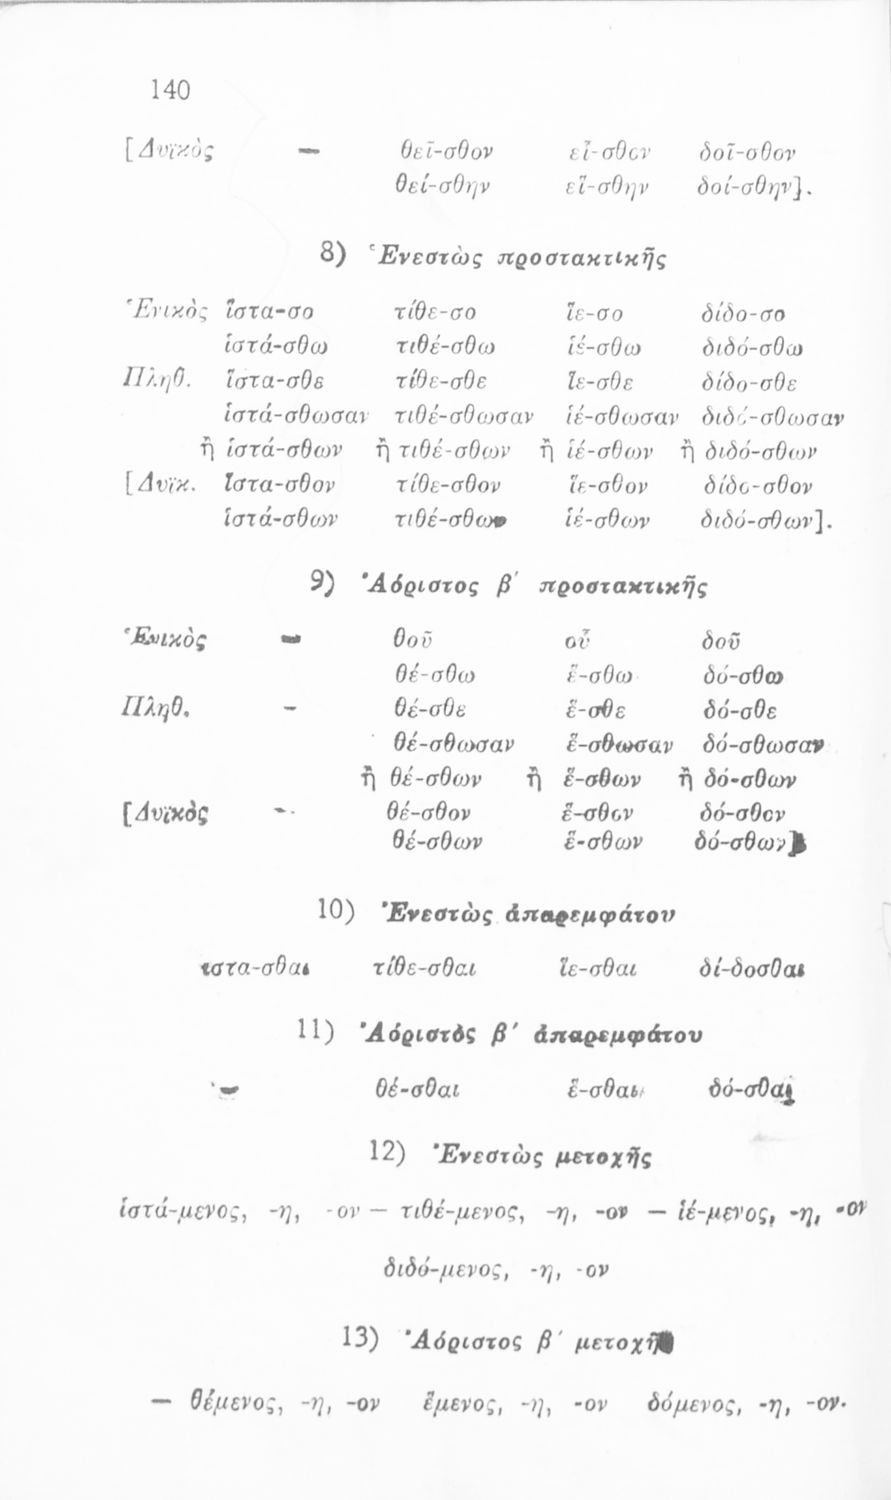 140
[Δυϊκὸς — θεῖ-σθον εἷ-σθον δοῖ-σθον
θεί-σθην εἵ-σθην δοί-σθην].
8) Ἐνεστὼς προστακτικῆς
Ἑνικὸς ἵστα-σο τίθε-σο ἵε-σο δίδο-σο
ἱστά-σθω τιθέ-σθω ἱέ-σθω διδό-σθω
Πληθ. ἵστα-σθε τίθε-σθε ἵε-σθε δίδο-σθε
ἱστά-σθωσαν τιθέ-σθωσαν ἱέ-σθωσαν διδό-σθωσαν
ἢ ἱστά-σθων ἢ τιθέ-σθων ἢ ἱέ-σθων ἢ διδό-σθων
[Δυϊκ. ἵστα-σθον τίθε-σθον ἵε-σθον δίδο-σθον
ἱστά-σθων τιθέ-σθων ἱέ-σθων διδό-σθων].
9) Ἀόριστος β΄ προστακτικῆς
Ἑνικὸς — θοῦ οὗ δοῦ
θέ-σθω ἕ-σθω δό-σθω
Πληθ. - θέ-σθε ἕ-σθε δό-σθε
θέ-σθωσαν ἕ-σθωσαν δό-σθωσαν
ἢ θέ-σθων ἢ ἕ-σθων ἢ δό-σθων
[Δυϊκὸς - θέ-σθον ἕ-σθον δό-σθον
θέ-σθων ἕ-σθων δό-σθων]
10) Ἐνεστὼς ἀπαρεμφάτου
ἵστα-σθαι τίθε-σθαι ἵε-σθαι δί-δοσθαι
11) Ἀόριστὸς β΄ ἀπαρεμφάτου
— θέ-σθαι ἕ-σθαι δό-σθαι
12) Ἐνεστὼς μετοχῆς
ἱστά-μενος, -η, -ον — τιθέ-μενος, -η, -ον — ἱέ-μενος, -η, -ον
διδό-μενος, -η, -ον
13) Ἀόριστος β΄ μετοχῆς
— θέμενος, -η, -ον ἕμενος, -η, -ον δόμενος, -η, -ον.